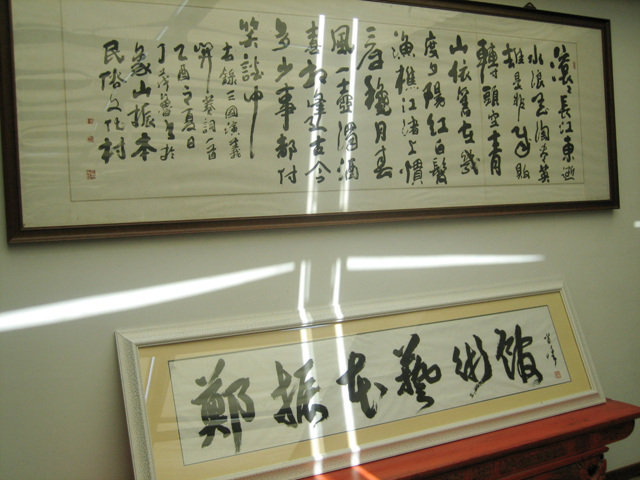 滾々長江東逝
水浪花淘盡英
雄是非成敗
轉頭空青
山依舊在幾
度夕陽紅白髮
漁樵江渚上慣
看穐月春
風一壺濁酒
喜相逢古今
多少事都付
笑談中
右錄三國演義
開篇詞一首
乙酉之夏日
書於
象山振本
民俗文化村
鄭振本藝術館